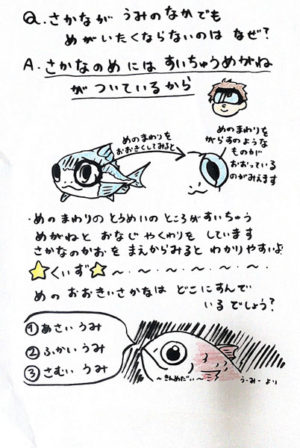 Q.さかなが うみのなかでも
めがいたくならないのは なぜ?
A.さかなのめには すいちゅうめがね
がついているから
めのまわりを
おおきくしてみると
めのまわりを
がらすのような
ものが
おおっている
のがみえます
・めのまわりのとうめいのところがすいちゅう
めがねと おなじやくわりを しています
さかなのかおを まえからみると わかりやすいよ
くいず 〜・〜・〜・〜・〜・
めの おおきいさかなは どこにすんで
いるでしょう?
①あさい うみ
②ふかい うみ
③さむい うみ
〜きんめだい〜
うーみーより